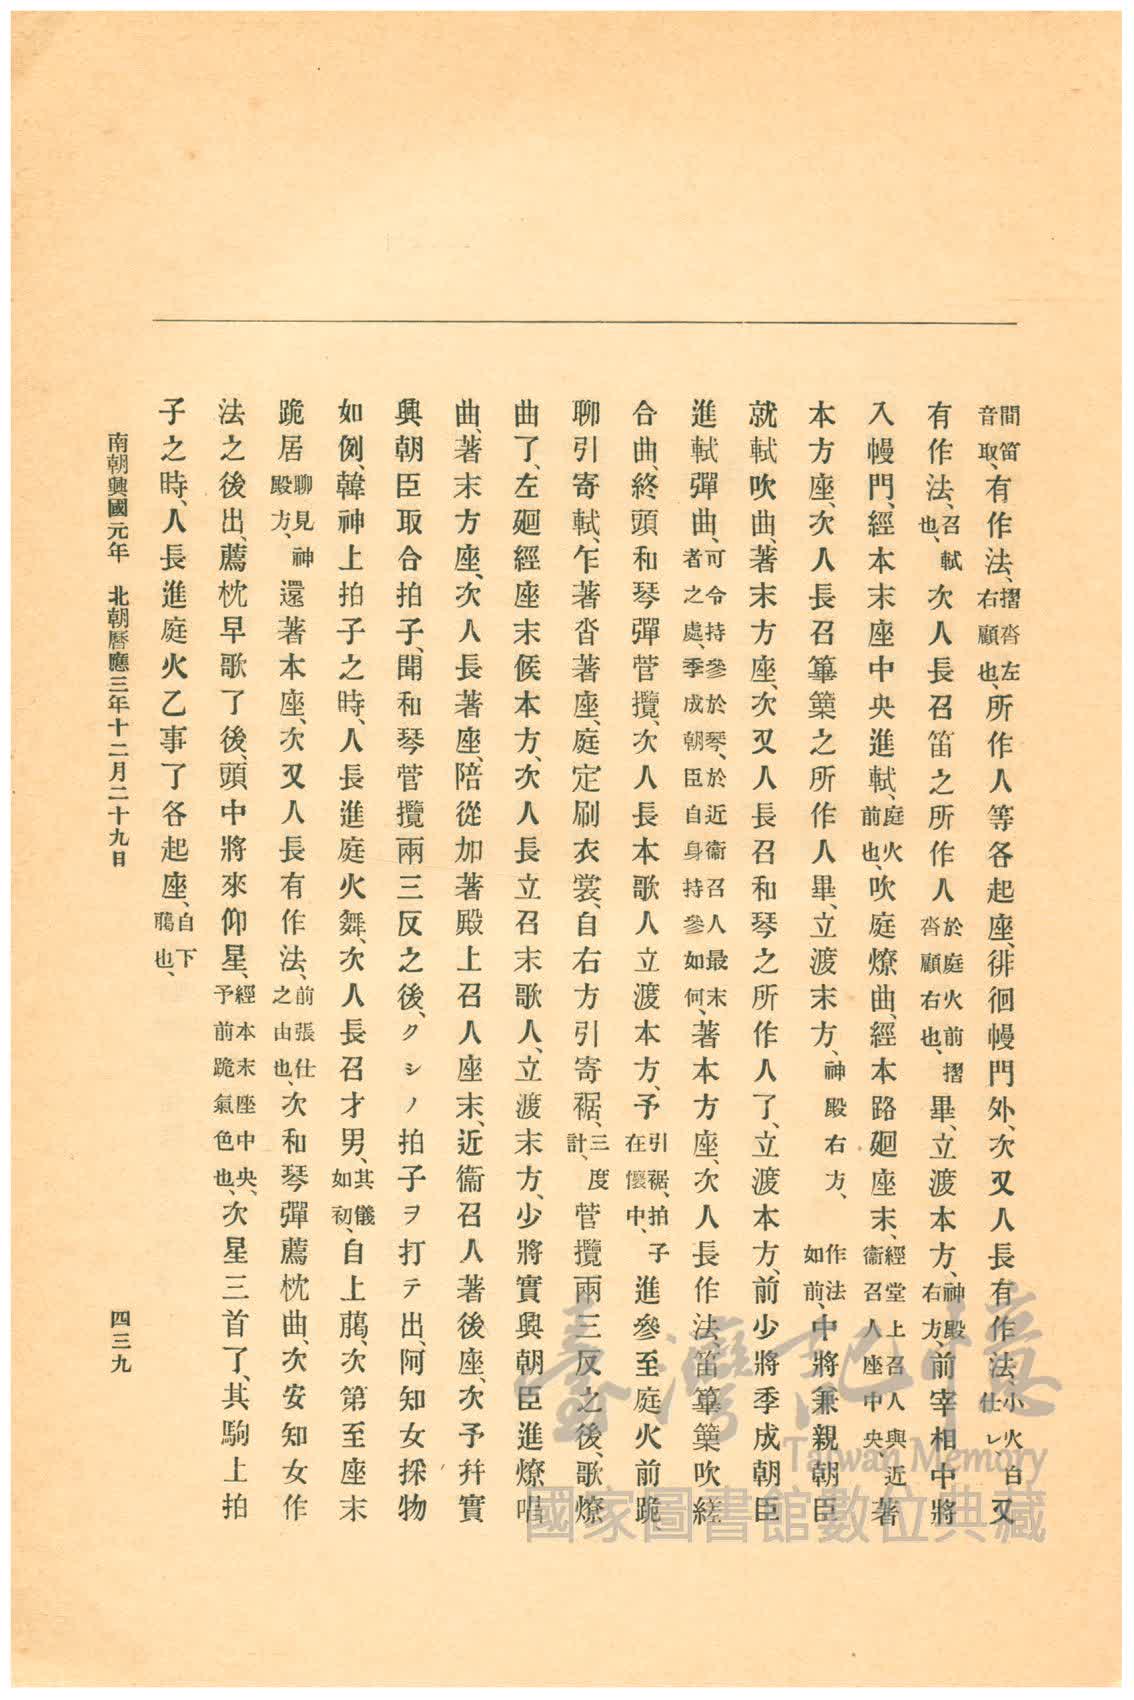 間笛音取、有作法、摺沓左右顧也、所作人等各起座、徘徊幔門外、次又人長有作法、小火白仕レ又
有作法、召軾也、次人長召笛之所作人於庭火前摺沓顧右也、畢、立渡本方、神殿右方、前宰相中將
入幔門、經本末座中央進軾、庭火前也、吹庭燎曲、經本路廻座末、經堂上召人與近衞召人座中央、著
本方座、次人長召篳篥之所作人畢、立渡末方、神殿右方、作法如前、中將兼親朝臣
就軾吹曲、著末方座、次又人長召和琴之所作人了、立渡本方、前少將季成朝臣
進軾彈曲、可令持參於琴、於近衞召人最末者之處、季成朝臣自身持參如何、著本方座、次人長作法、笛篳篥吹縒
合曲、終頭和琴彈菅攬、次人長本歌人立渡本方、予引裾、拍子在懷中、進參至庭火前跪、
聊引寄軾、乍著沓著座、庭定刷衣裳、自右方引寄裾、三度計、菅攬兩三反之後、歌燎
曲了、左廻經座末候本方、次人長立召末歌人、立渡末方、少將實興朝臣進燎唱
曲、著末方座、次人長著座、陪從加著殿上召人座末、近衞召人著後座、次予幷實
興朝臣取合拍子、聞和琴菅攬兩三反之後、クシノ拍子ヲ打テ出、阿知女採物
如例、韓神上拍子之時、人長進庭火舞、次人長召才男、其儀如初、自上﨟、次第至座末
跪居聊見神殿方、還著本座、次又人長有作法、前張仕之由也、次和琴彈薦枕曲、次安知女作
法之後出、薦枕早歌了後、頭中將來仰星、經本末座中央、予前跪氣色也、次星三首了、其駒上拍
子之時、人長進庭火乙事了各起座、自下﨟也、
南朝興國元年 北朝曆應三年十二月二十九日
四三九
臺灣記憶
Taiwan Memory
國家圖書館數位典藏